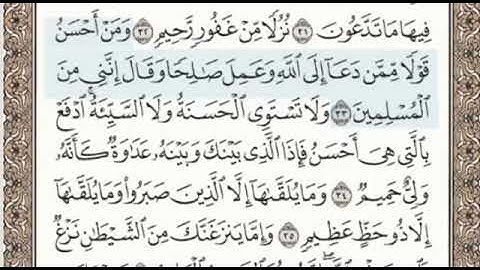 فِيهَا مَا تَدَّعُونَ ٣١ نُزُلًا مِّنْ غَفُورٍ رَّحِيمٍ ٣٢ وَمَنْ أَحْسَنُ
قَوْلًا مِّمَّن دَعَآ إِلَى ٱللَّهِ وَعَمِلَ صَٰلِحًا وَقَالَ إِنَّنِى مِنَ
ٱلْمُسْلِمِينَ ٣٣ وَلَا تَسْتَوِى ٱلْحَسَنَةُ وَلَا ٱلسَّيِّئَةُ ۚ ٱدْفَعْ
بِٱلَّتِى هِىَ أَحْسَنُ فَإِذَا ٱلَّذِى بَيْنَكَ وَبَيْنَهُۥ عَدَٰوَةٌ كَأَنَّهُۥ
وَلِىٌّ حَمِيمٌ ٣٤ وَمَا يُلَقَّىٰهَآ إِلَّا ٱلَّذِينَ صَبَرُوا۟ وَمَا يُلَقَّىٰهَآ
إِلَّا ذُو حَظٍّ عَظِيمٍ ٣٥ وَإِمَّا يَنزَغَنَّكَ مِنَ ٱلشَّيْطَٰنِ نَزْغٌ